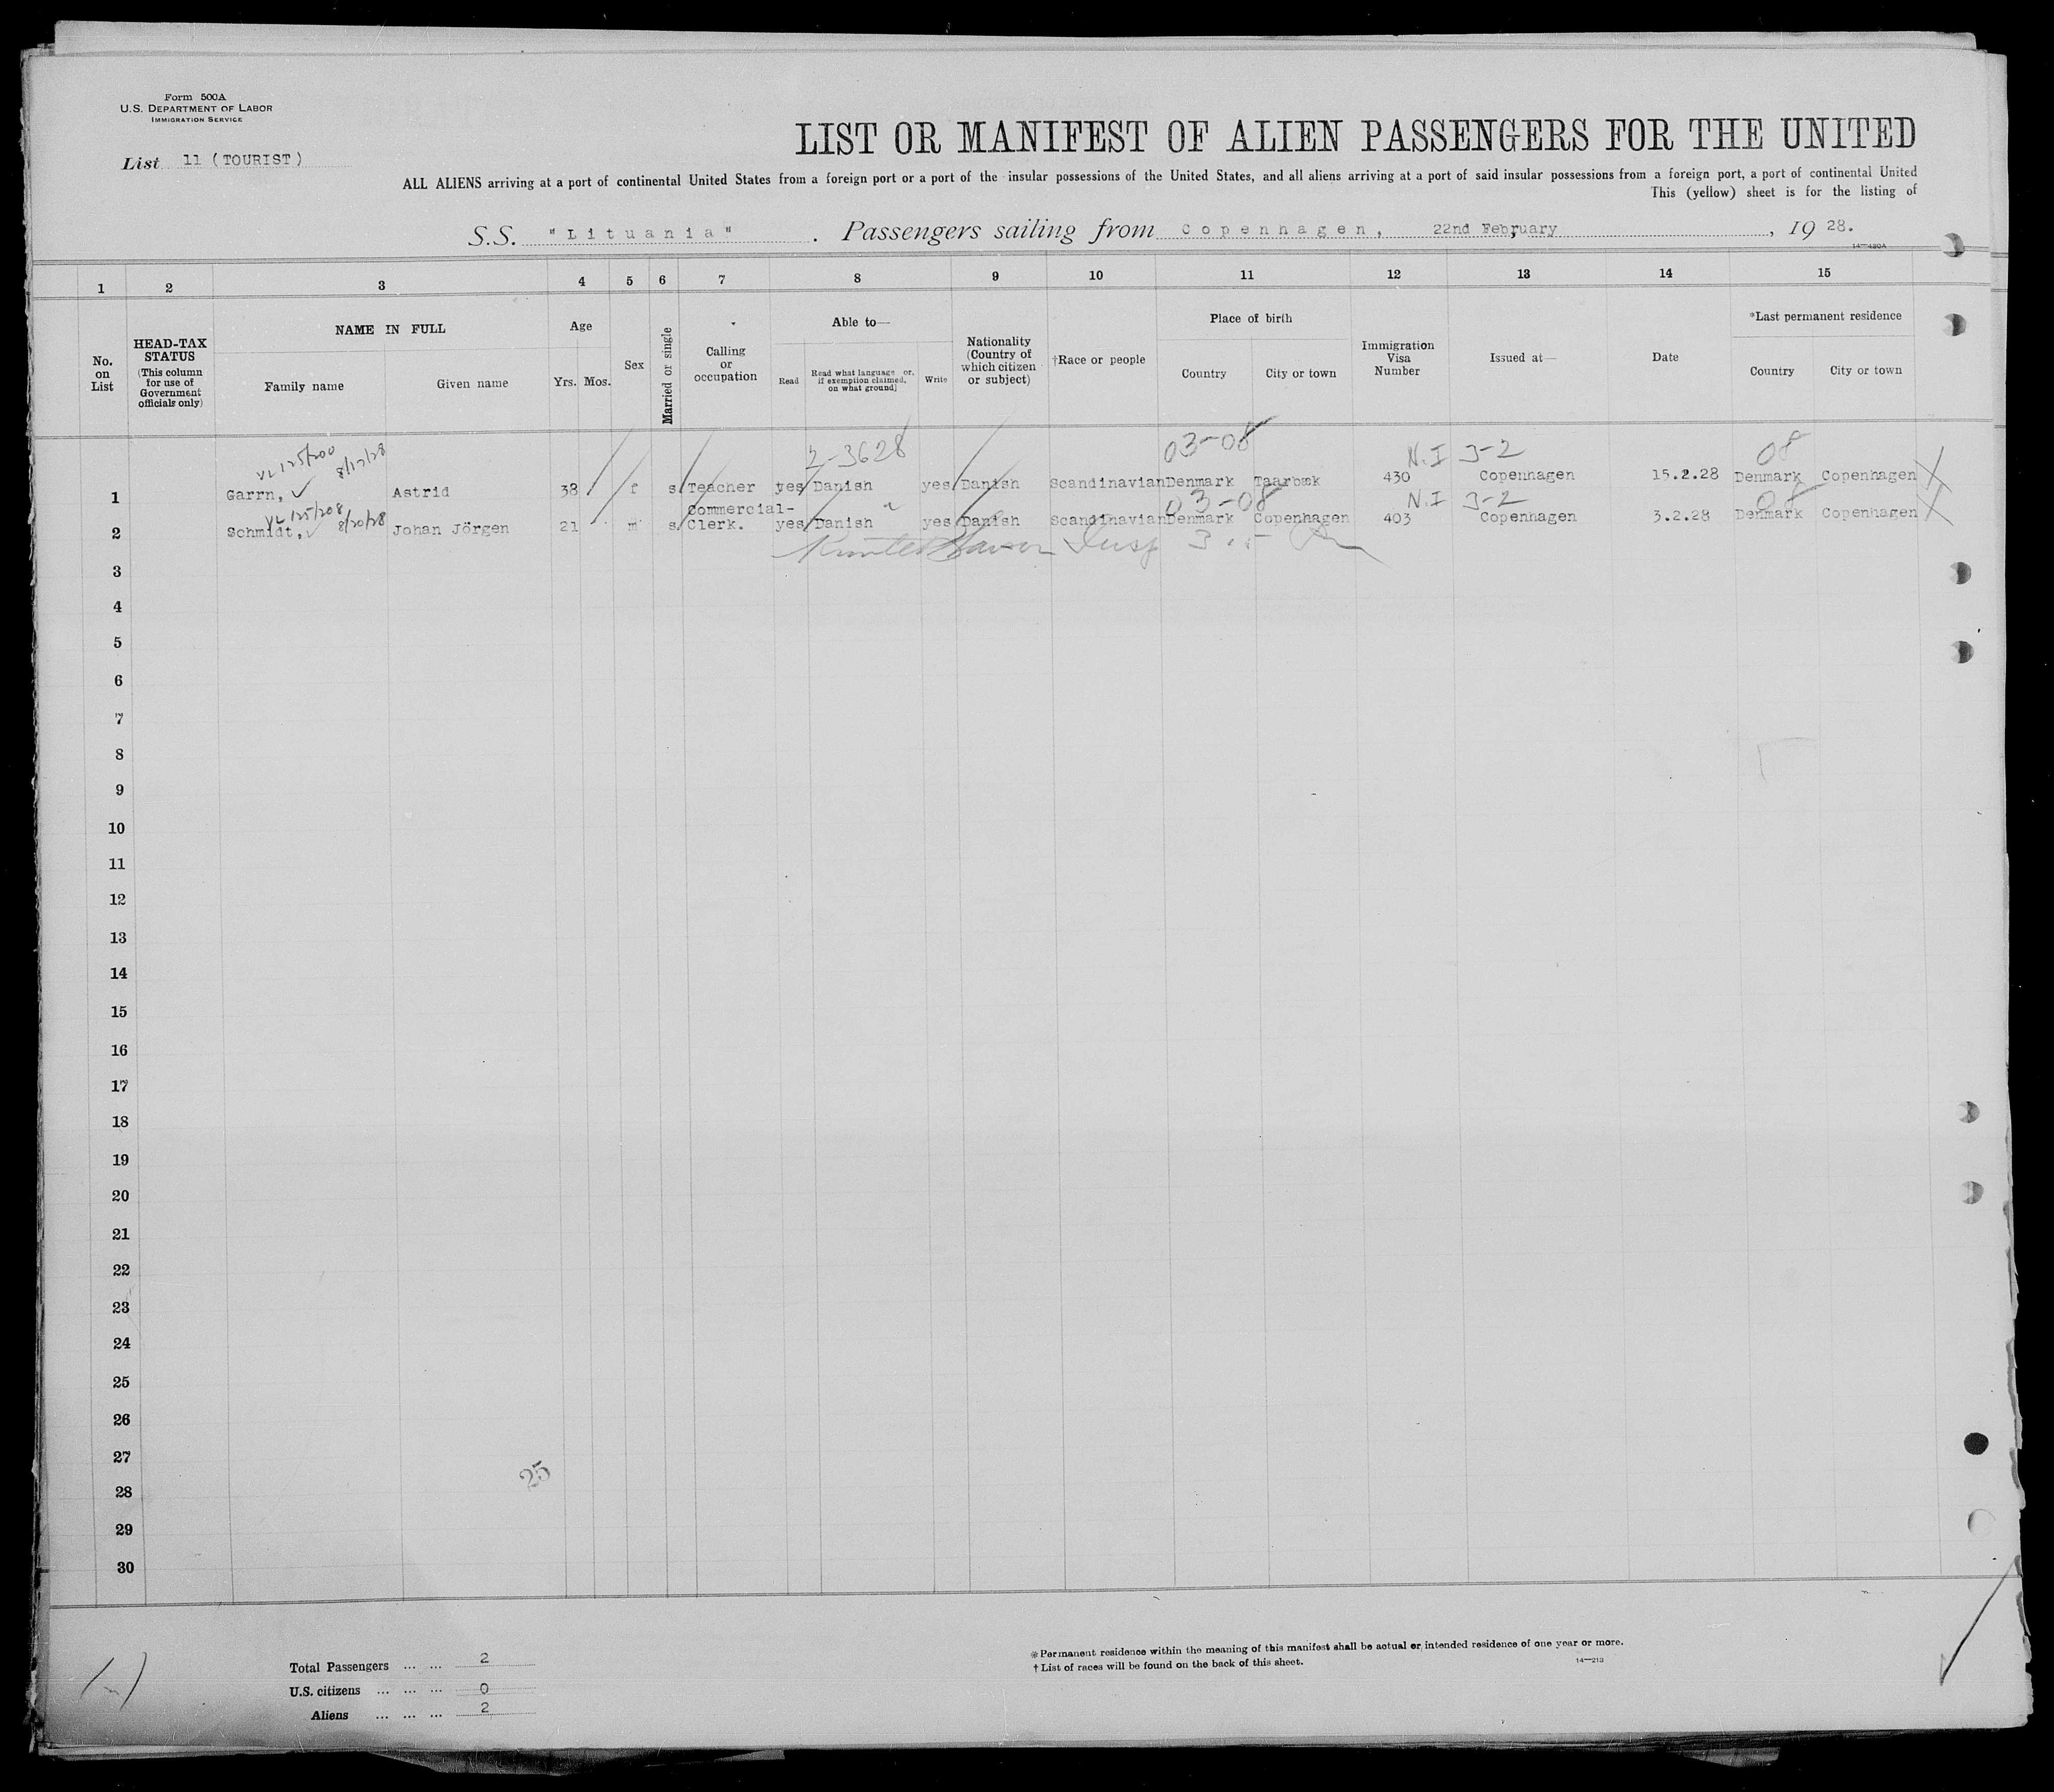 Form 500A
U.S. DEPARTMENT OF LABOR
IMMIGRATION SERVICE
List 11 (TOURIST)
LIST OR MANIFEST OF ALIEN PASSENGERS FOR THE UNITED
ALL ALIENS arriving at a port of continental United States from a foreign port or a port of the insular possessions of the United States, and all aliens arriving at a port of said insular possessions from a foreign port, a port of continental United
This (yellow) sheet is for the listing of
S.S. "Lituania". Passengers sailing from Copenhagen, 22nd February, 1928.
14—430A
1 2 3 4 5 6 7 8 9 10 11 12 13 14 15
No. on List
HEAD-TAX STATUS (This column for use of Government officials only)
NAME IN FULL
Family name Given name
Age
Yrs. Mos.
Sex
Married or single
Calling or occupation
Able to—
Read
Read what language or, if exemption claimed, on what ground]
Write
Nationality (Country of which citizen or subject)
†Race or people
Place of birth
Country City or town
Immigration Visa Number
Issued at—
Date
*Last permanent residence
Country City or town
8/17/28 2-3628 03-08 N.I 3-2 08
1 Garrn, ✓ Astrid 38 f s Teacher yes Danish yes Danish Scandinavian Denmark Taarbæk 430 Copenhagen 15.2.28 Denmark Copenhagen
VL 125/208 8/20/28 Commercial- 03-08 N.I 3-2 08
2 Schmidt, ✓ Johan Jörgen 21 m s Clerk. yes Danish yes Danish Scandinavian Denmark Copenhagen 403 Copenhagen 3.2.28 Denmark Copenhagen
Insp
3
4
5
6
7
8
9
10
11
12
13
14
15
16
17
18
19
20
21
22
23
24
25
26
27
25
28
29
30
Total Passengers ... ... 2
U.S. citizens ... ... ... 0
Aliens ... ... ... 2
* Permanent residence within the meaning of this manifest shall be actual or intended residence of one year or more.
† List of races will be found on the back of this sheet.
14—213